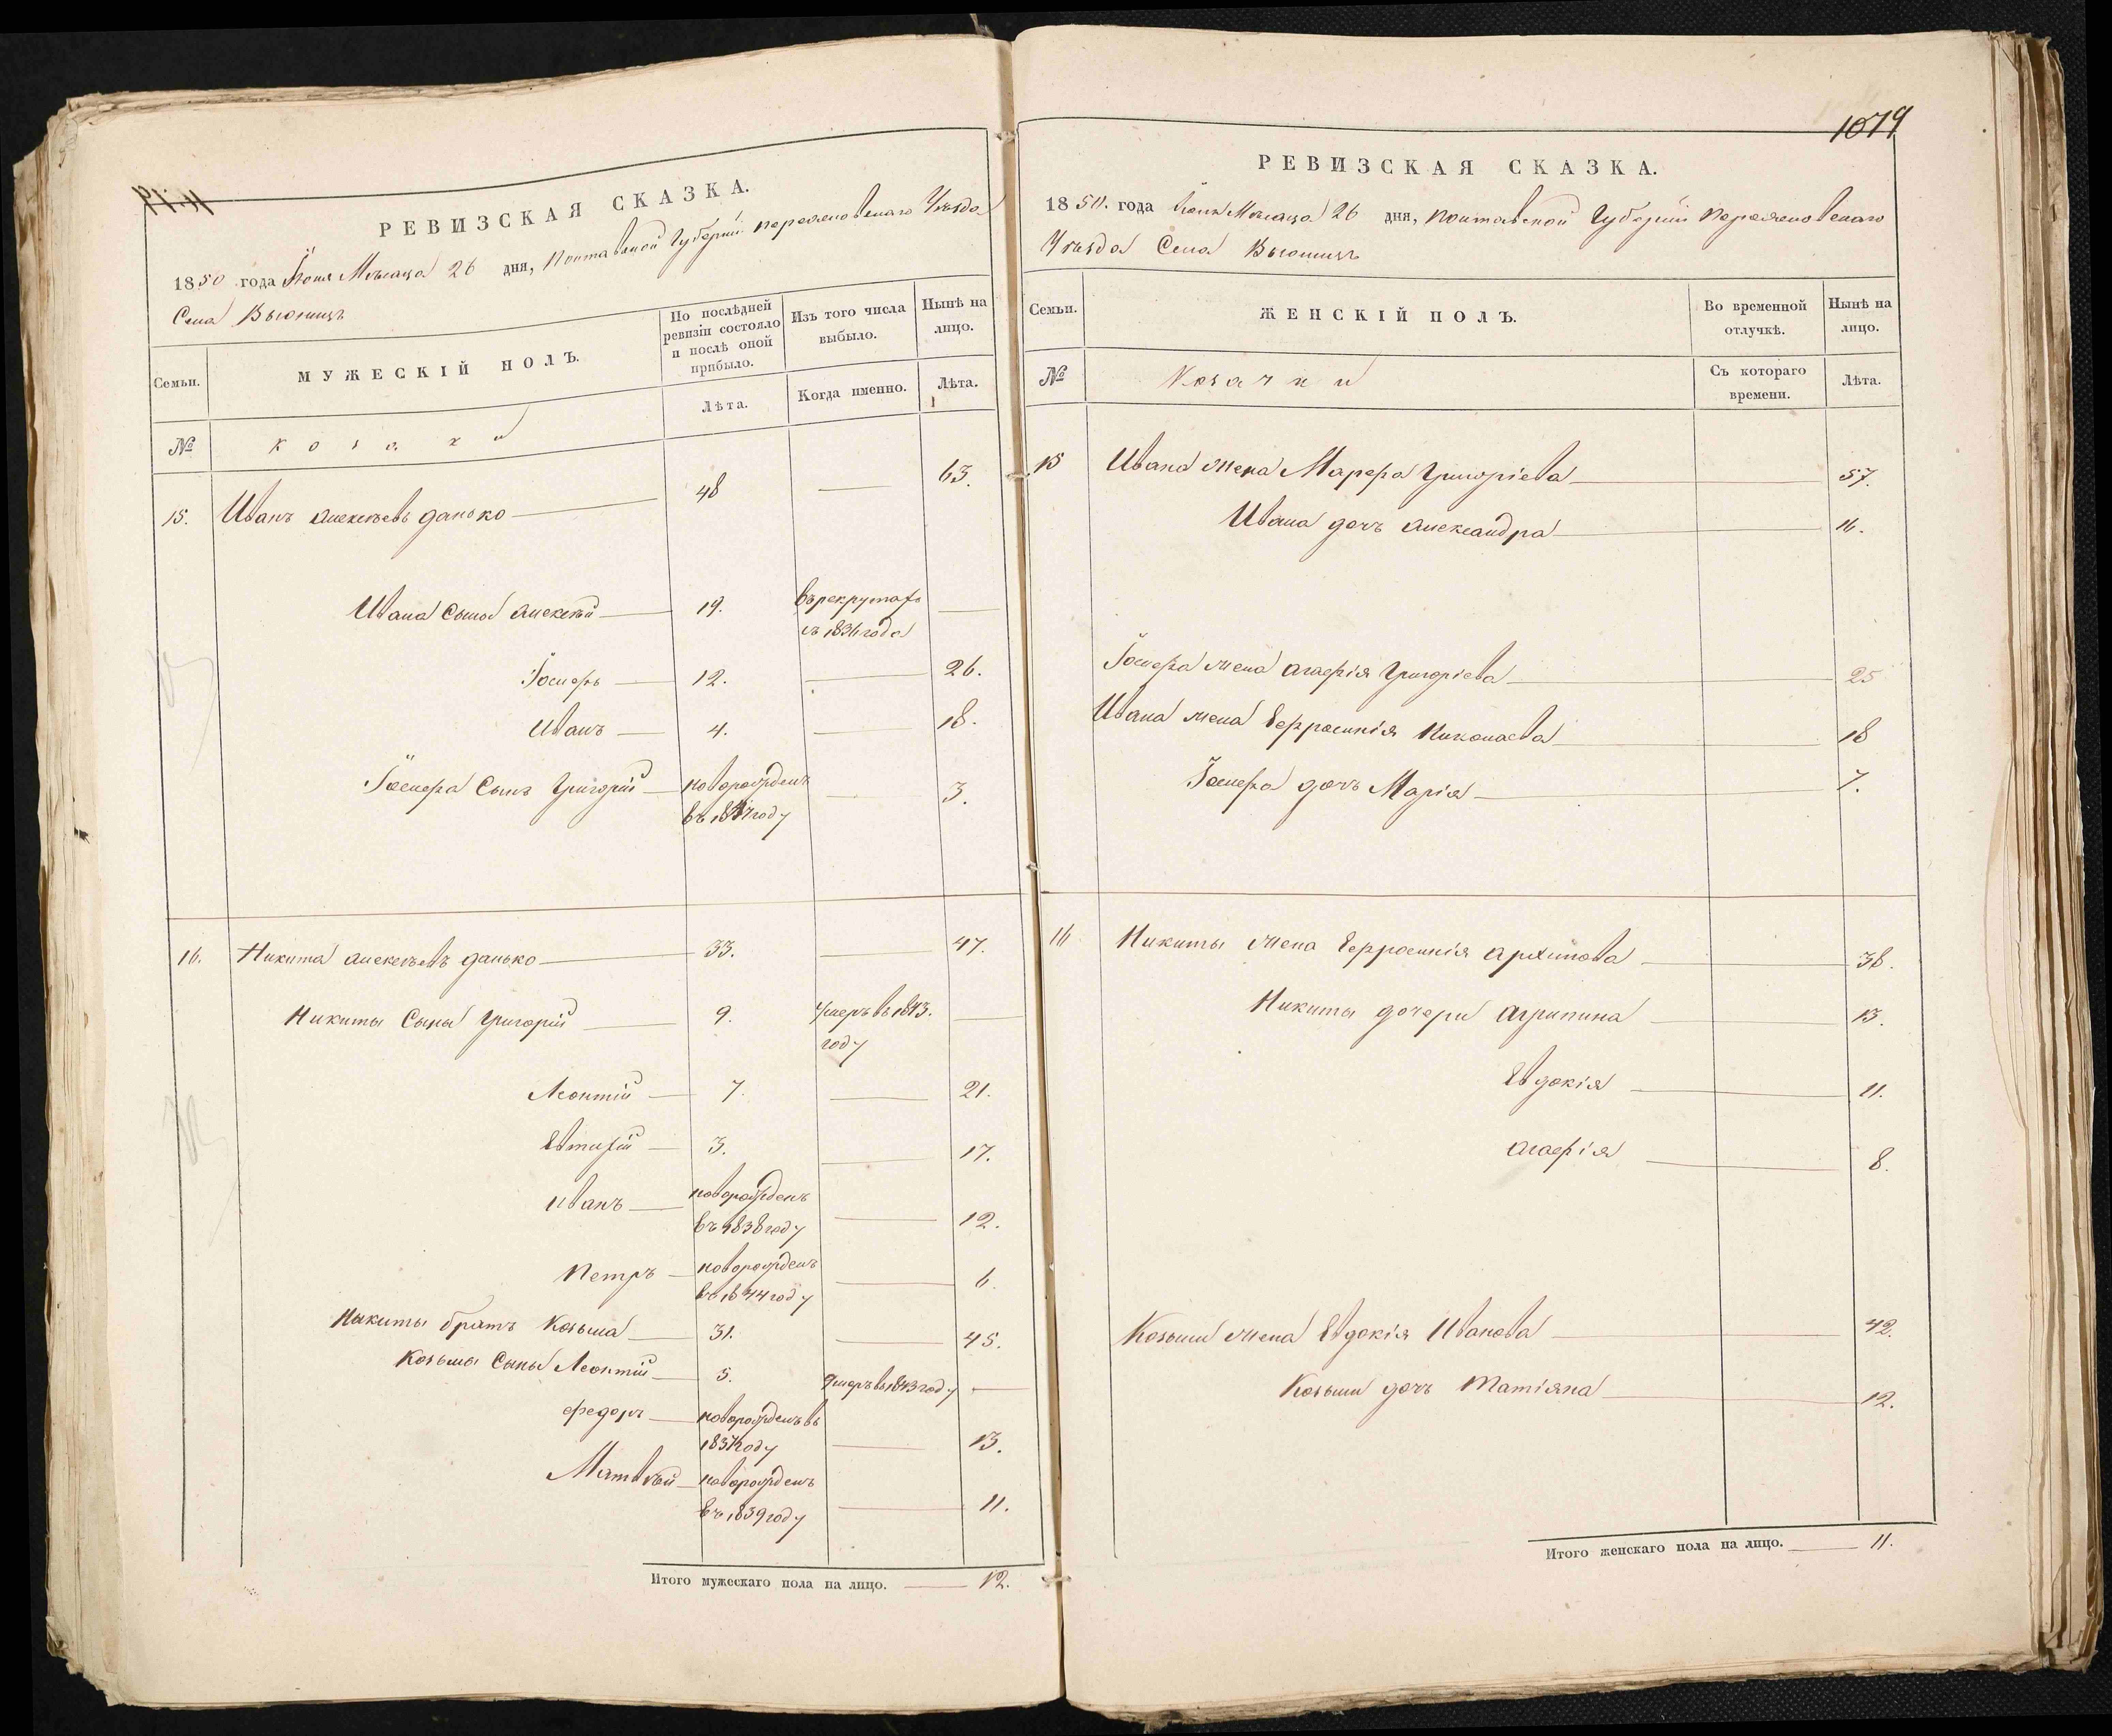 РЕВИЗСКАЯ СКАЗКА.
1850 года Іюня Мѣсяца 26 дня, Полтавской Губерніи Переяславскаго Уѣзда
Села Вьюнищъ
Семьи.
МУЖЕСКІЙ ПОЛЪ.
По послѣдней ревизіи состояло и послѣ оной прибыло.
Изъ того числа выбыло.
Нынѣ на лицо.
№
козаки
Лѣта.
Когда именно.
Лѣта.
15. Иванъ Алексѣевъ Данько 48 63.
Ивана Сыны Алексѣй 19. въ рекрутах
съ 1836 года
Іосифъ 12. 26.
Иванъ 4. 18.
Іосифа Сынъ Григорій новорожденъ 3.
въ 1847 году
16. Никита Алексѣевъ Данько 33. 47.
Никиты Сыны Григорій 9. Умеръ въ 1843.
году
Леонтій 7. 21.
Евтифій 3. 17.
Иванъ новорожденъ
въ 1838 году 12.
Петръ новорожденъ
въ 1844 году 6.
Никиты братъ Козьма 31. 45.
Козьмы Сыны Леонтій 5. Умеръ въ 1843 году
Федоръ новорожденъ въ
1837 году 13.
Матвѣй новорожденъ
въ 1839 году 11.
Итого мужескаго пола на лицо. 12.
1079
РЕВИЗСКАЯ СКАЗКА.
1850. года Іюня Мѣсяца 26 дня, Полтавской Губерніи Переяславскаго
Уѣзда Села Вьюнищъ
Семьи.
ЖЕНСКІЙ ПОЛЪ.
Во временной отлучкѣ.
Нынѣ на лицо.
№
Козачки
Съ котораго времени.
Лѣта.
15 Ивана жена Марфа Григоріева 57.
Ивана дочь Александра 16.
Іосифа жена Агафія Григоріева 25
Ивана жена Ефросинія Николаева 18
Іосифа дочь Марія 7.
16 Никиты жена Ефросинія Архипова 38.
Никиты дочери Агрипина 13.
Евдокія 11.
Агафія 8.
Козьмы жена Евдокія Иванова 42.
Козьмы дочь Татіяна 12.
Итого женскаго пола на лицо. 11.